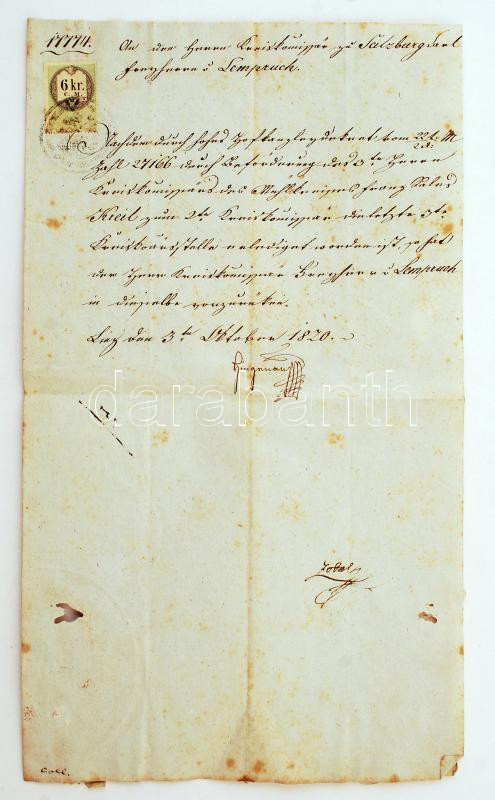 17774.
An den Herrn Kreiskomissär zu Salzburg Karl
Freyherrn v Lempruch.
6 kr.
C. M.
Nachdem durch hohes Hofkanzleydekret vom 22t. M
Zahl 27166 durch Beförderung des 3ten Herrn
Kreiskomissärs des Mühlkreises Franz
Keil zum 2ten Kreiskomissär die letzte 3te
Kreiskoärsstelle erlediget worden ist, so hat
der Herr Kreiskomissär Freyherr v Lempruch
in dieselbe vorzurücken.
Linz den 3ten Oktober 1820.
Hingenau
darabanth
coll.